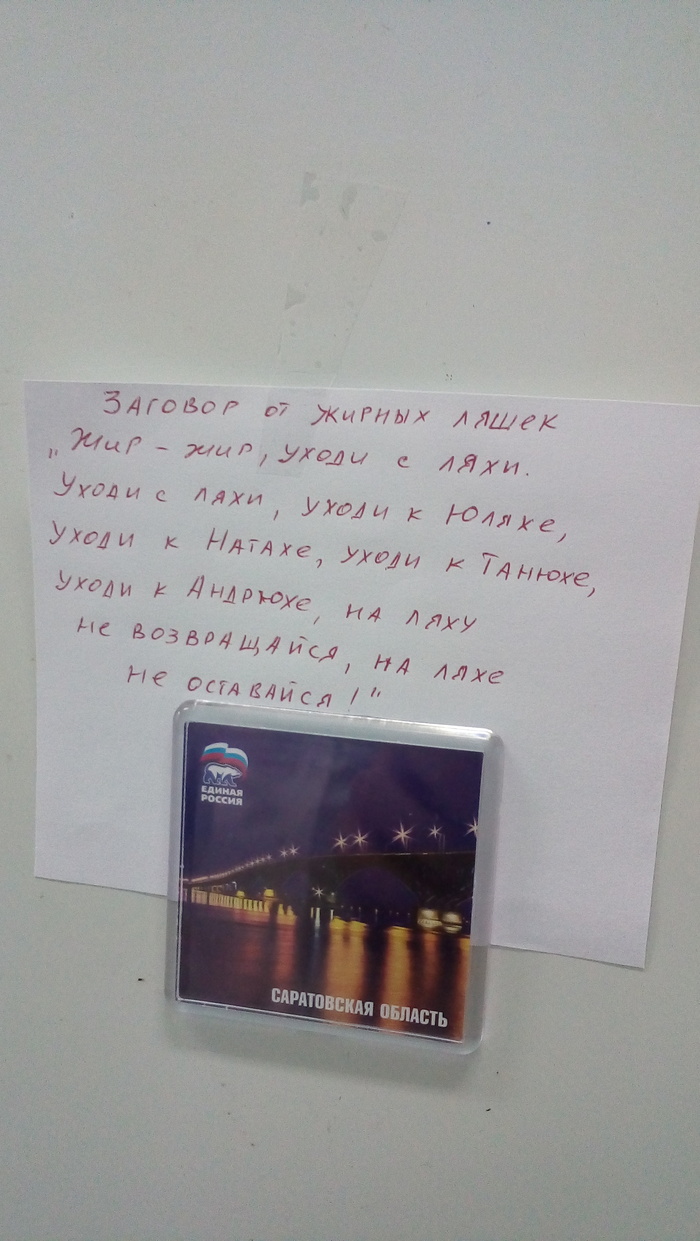 Заговор от жирных ляшек
„Жир – жир, уходи с ляхи.
Уходи с ляхи, уходи к Юляхе,
уходи к Натахе, уходи к Танюхе,
уходи к Андрюхе, на ляху
не возвращайся, на ляхе
не оставайся!"
ЕДИНАЯ
РОССИЯ
САРАТОВСКАЯ ОБЛАСТЬ